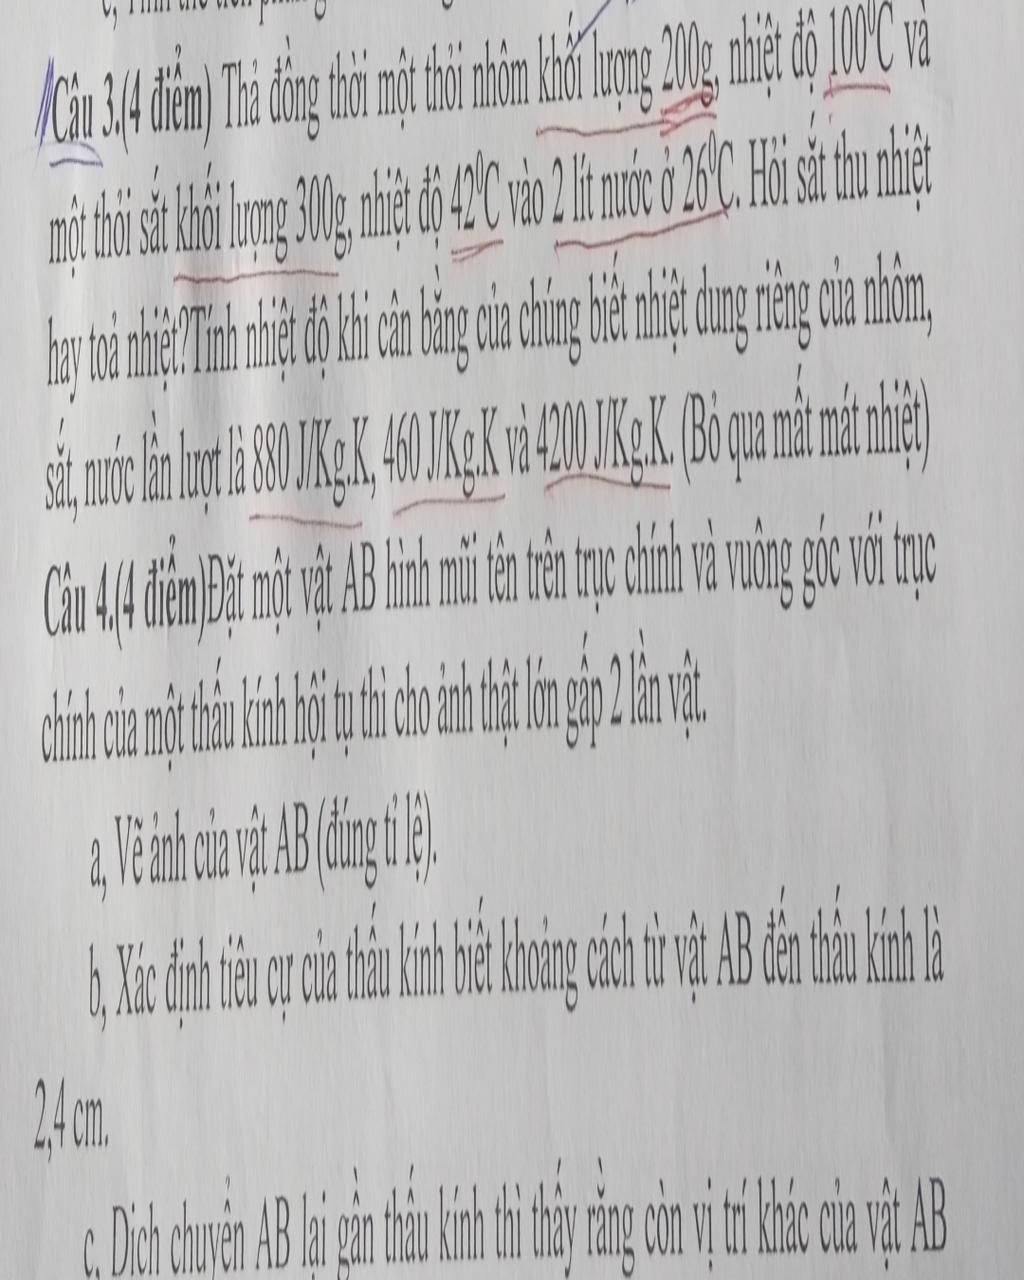 Câu 3.(4 điểm) Thả đồng thời một thỏi nhôm khối lượng 200g, nhiệt độ 100⁰C và
một thỏi sắt khối lượng 300g, nhiệt độ 42⁰C vào 2 lít nước ở 26⁰C. Hỏi sắt thu nhiệt
hay toả nhiệt?Tính nhiệt độ khi cân bằng của chúng biết nhiệt dung riêng của nhôm,
sắt, nước lần lượt là 880 J/Kg.K, 460 J/Kg.K và 4200 J/Kg.K. (Bỏ qua mất mát nhiệt)
Câu 4.(4 điểm)Đặt một vật AB hình mũi tên trên trục chính và vuông góc với trục
chính của một thấu kính hội tụ thì cho ảnh thật lớn gấp 2 lần vật.
a, Vẽ ảnh của vật AB (đúng tỉ lệ).
b, Xác định tiêu cự của thấu kính biết khoảng cách từ vật AB đến thấu kính là
2,4 cm.
c, Dịch chuyển AB lại gần thấu kính thì thấy rằng còn vị trí khác của vật AB